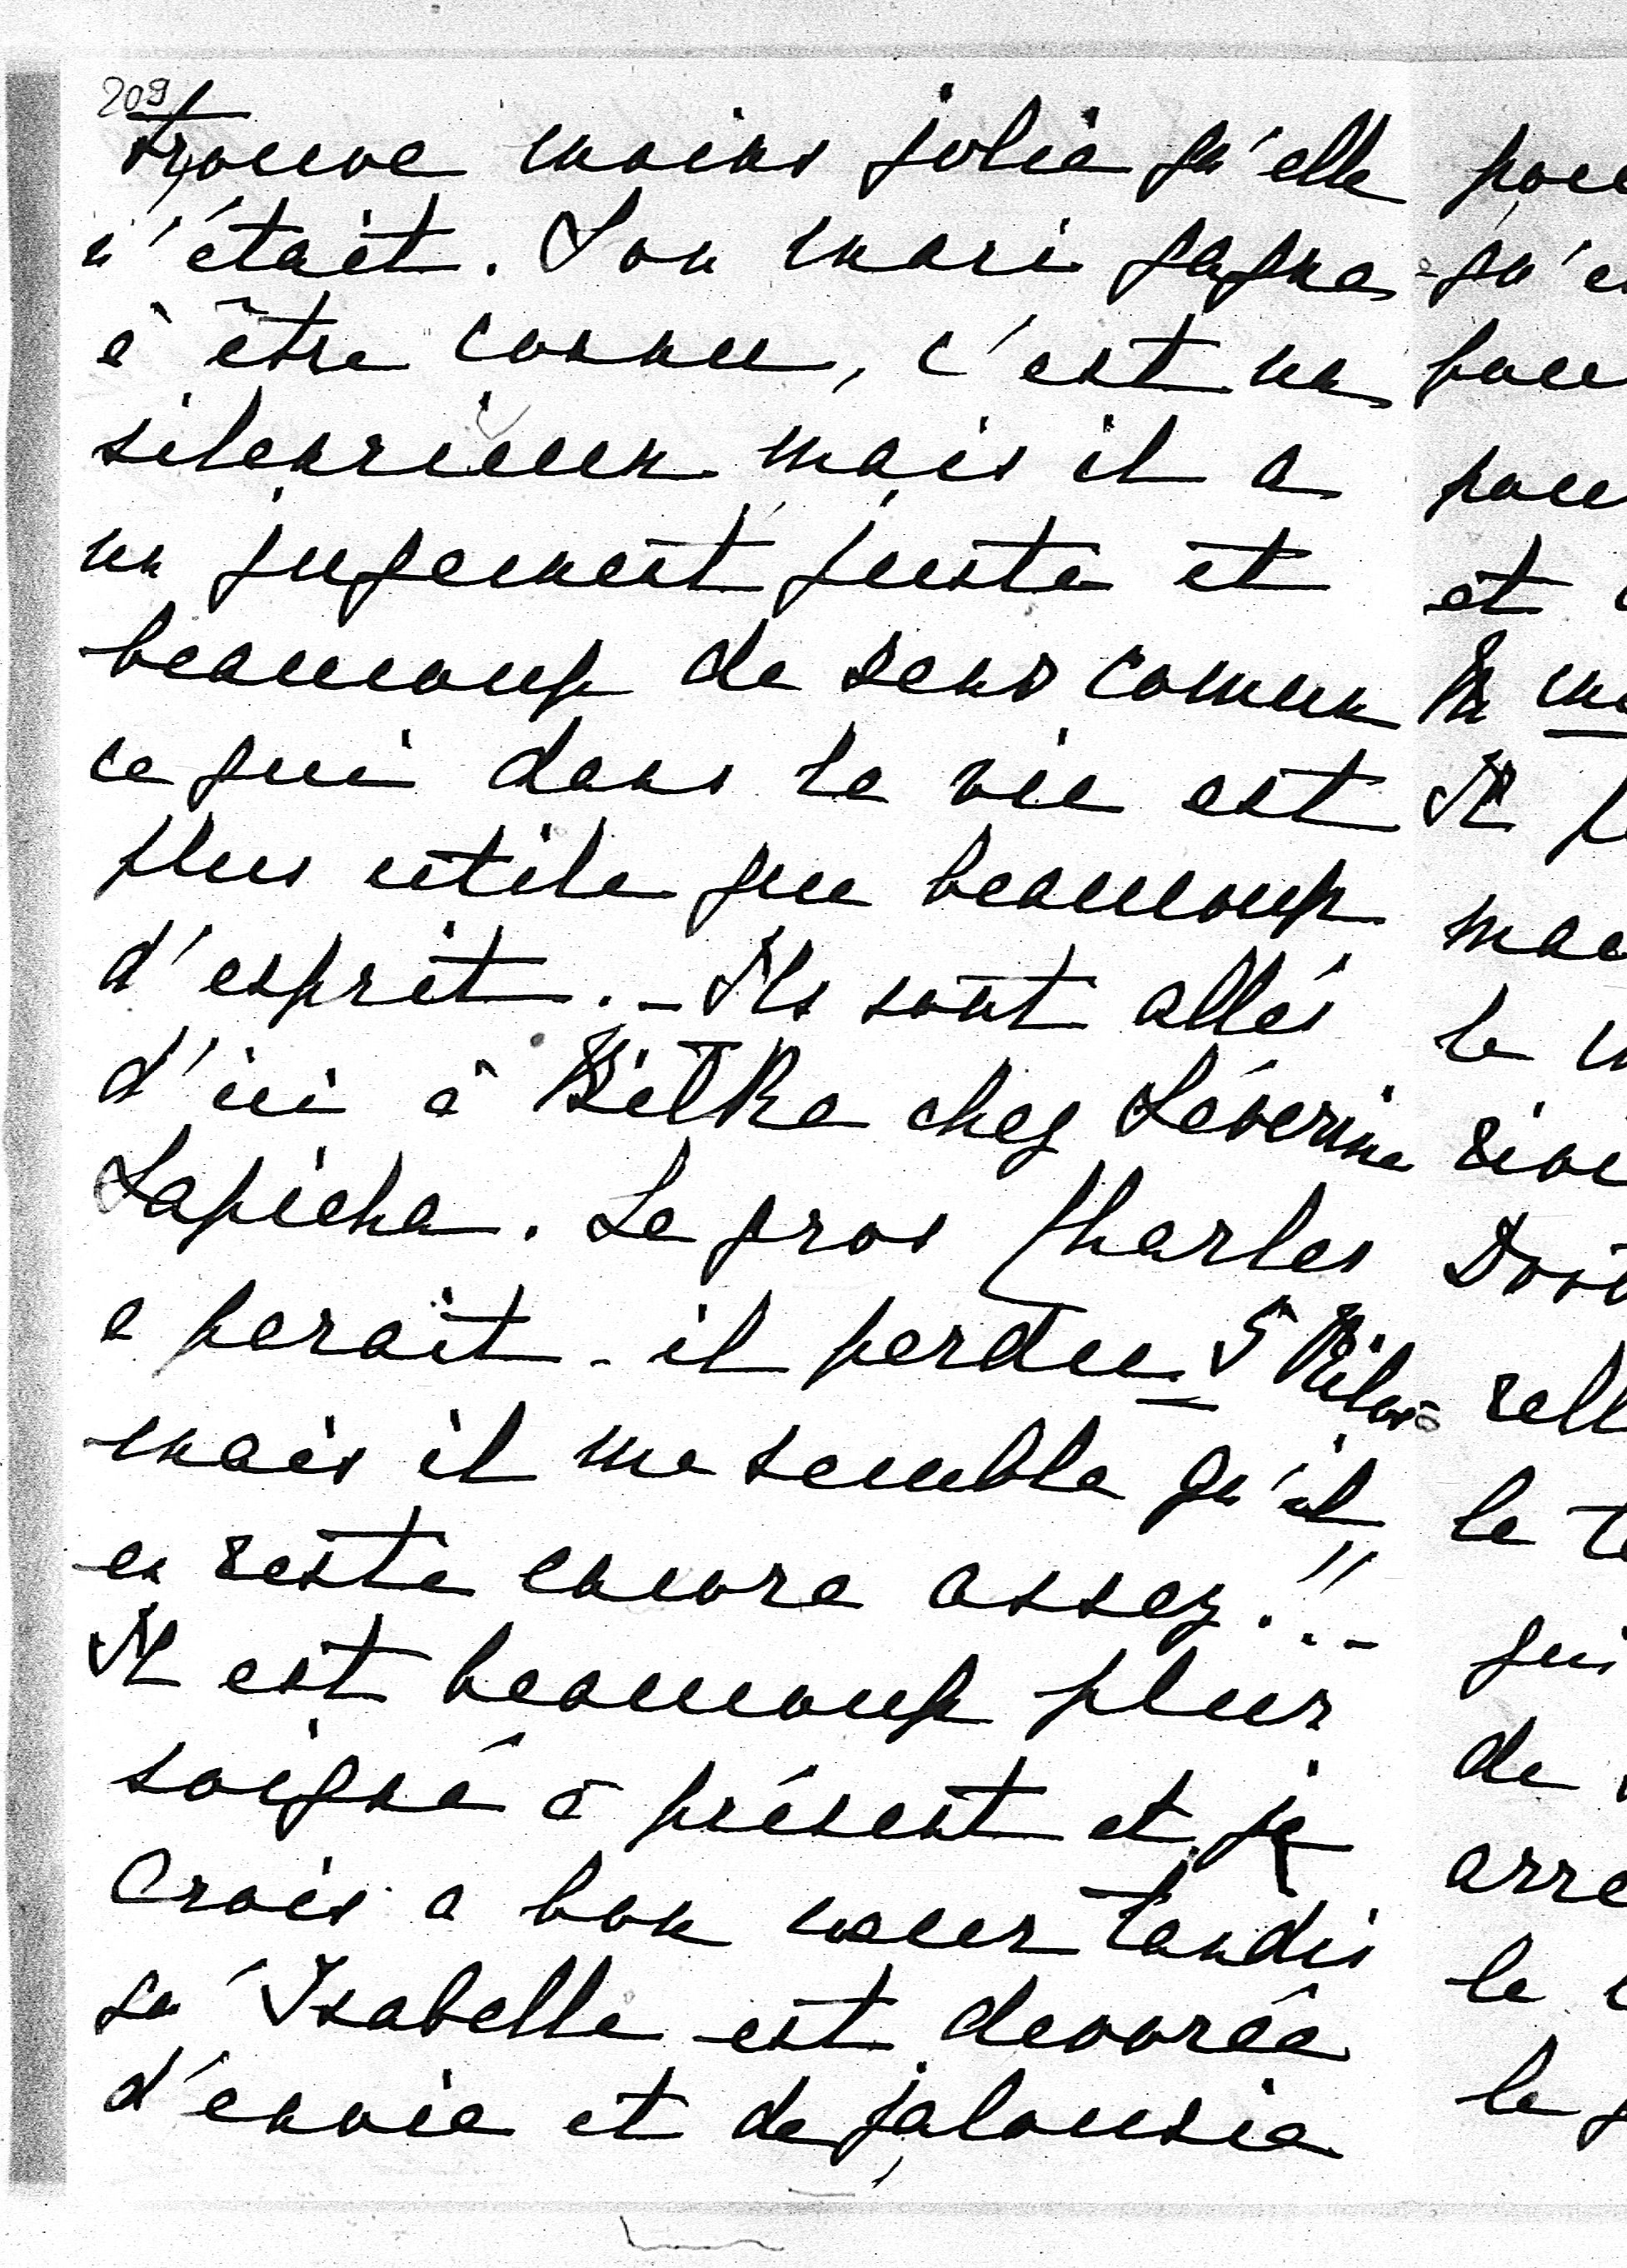 209
trouve moins jolie qu'elle
n'était. Son mari gagne
à être connu, c'est un
silencieux mais il a
un jugement juste et
beaucoup de sens comun
ce qui dans la vie est
plus utile que beaucoup
d'esprit. - Ils sont allés
d'ici à chez Séverine
Sapieha. Le gros Charles
a parait-il perdu 5 Kilos
mais il me semble qu'il
en reste encore assez!!! -
Il est beaucoup plus
soigné à présent et je
crois a bon coeur tandis
qu'Isabelle est devorée
d'envie et de jalousie